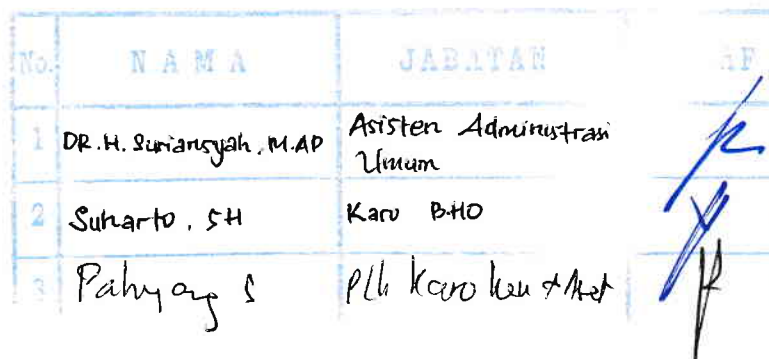 No. NAMA JABATAN
1 DR. H. Suriansyah, M.AP Asisten Administrasi
Umum
2 Suharto, SH Karo B.HO
3 S Plh Karo